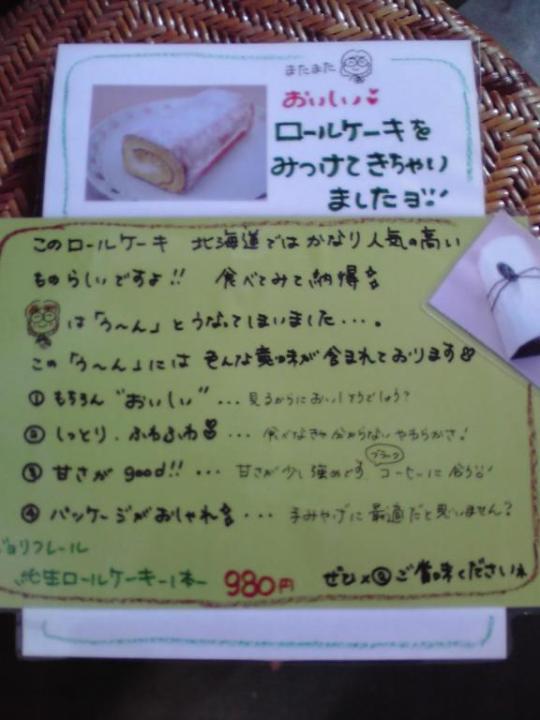 またまた
おいしい
ロールケーキを
みつけてきちゃい
ましたヨ!!
このロールケーキ 北海道では かなり人気の高い
ものらしいですよ!! 食べてみて納得
は「う〜ん」とうなってしまいました・・・。
この「う〜ん」には そんな意味が含まれております
① もちろん "おいしい" ・・・ 見るからにおいしそうでしょう?
② しっとり、ふわふわ ・・・ 食べなきゃ分からないやわらかさ!
③ 甘さが good!! ・・・ 甘さが少し強めです ブラックコーヒーに合う!
④ パッケージがおしゃれ ・・・ 手みやげに最適だと思いません?
ジョリフレール
純生ロールケーキ 1本 980円 ぜひ ご賞味ください